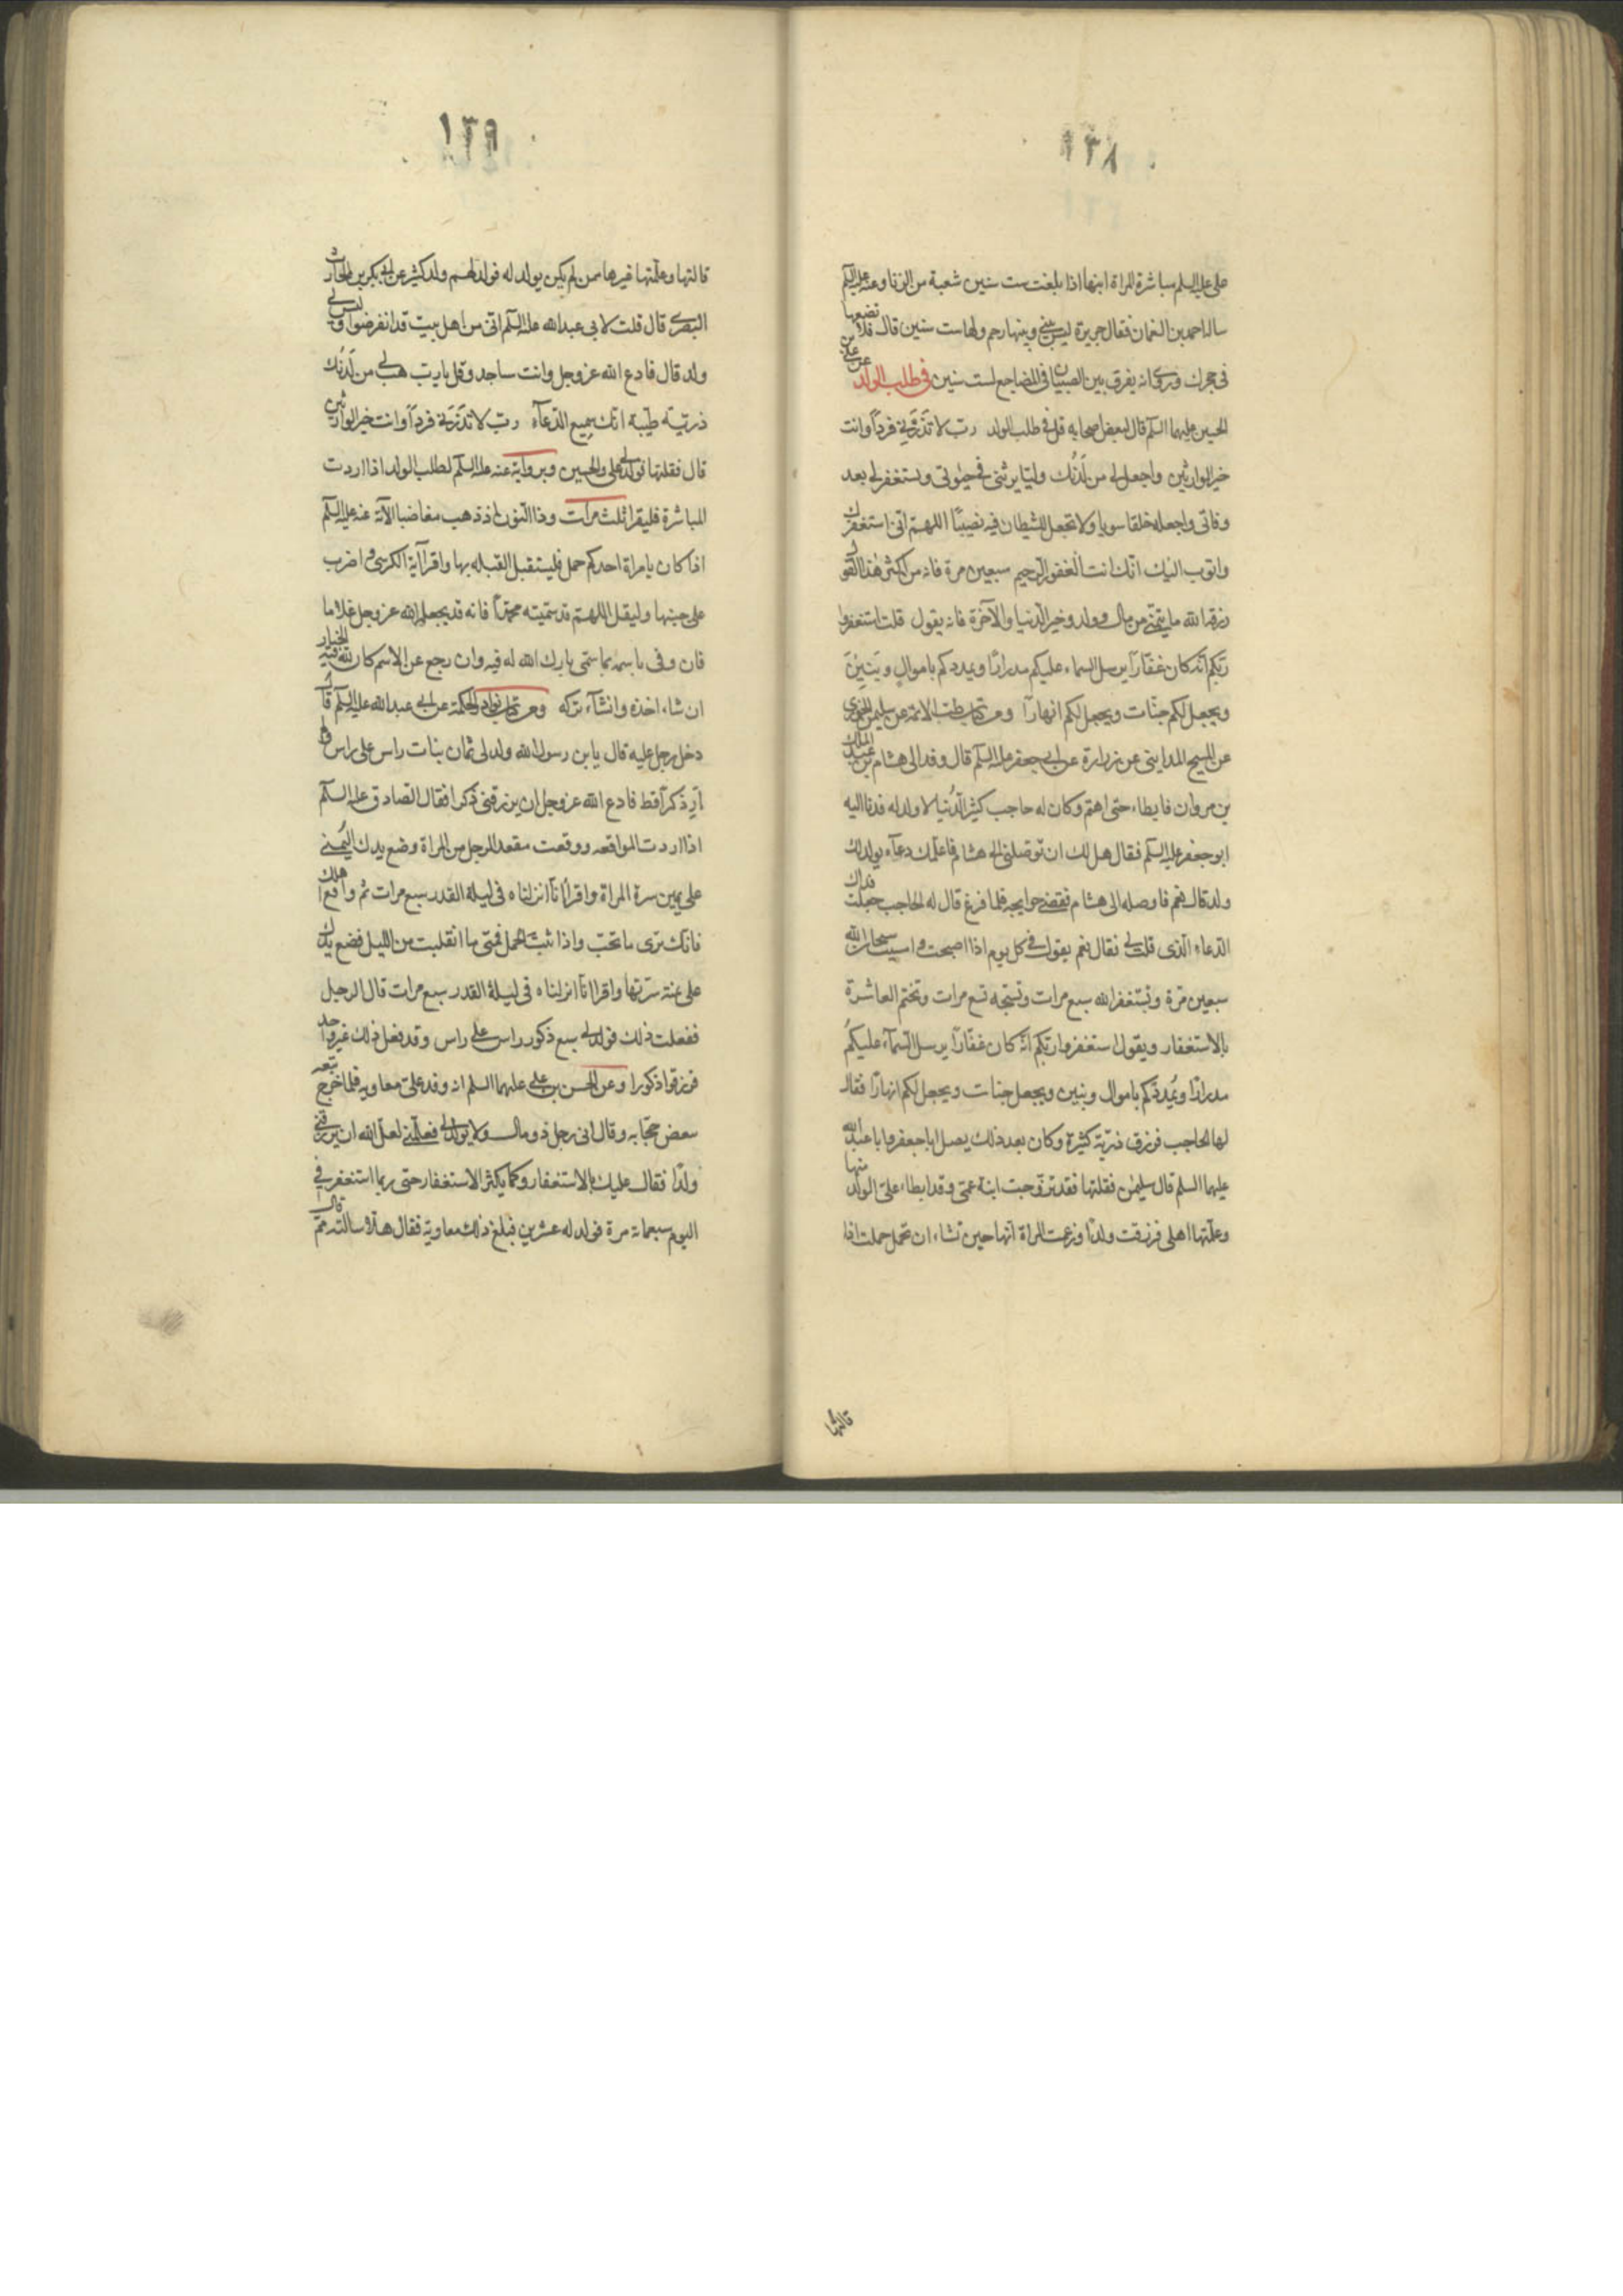 ١٣٨
على عليه السلم مباشرة المراة ابنتها اذا بلغت ست سنين شعبة من الزنا وعنه عليه السلم
ساله احمد بن النعمان فقال جويرة ليس بيني وبينها رحم ولها ست سنين قال فلا تضعها
في حجرك وروى انه يفرق بين الصبيان في المضاجع لست سنين في طلب الولد عن علي بن
الحسين عليهما السلم قال لبعض اصحابه قل في طلب الولد رب لا تذرني فردًا وانت
خير الوارثين واجعل لي من لدنك وليا يرثني في حيوتي ويستغفر لي بعد
وفاتي واجعله خلقا سويا ولا تجعل للشيطان فيه نصيبًا اللهم اني استغفرك
واتوب اليك انك انت الغفور الرحيم سبعين مرة فانه من اكثر هذا القول
رزقه الله ما يتمنى من مال وولد وخير الدنيا والآخرة فانه يقول قلت استغفروا
ربكم انه كان غفارًا يرسل السماء عليكم مدرارًا ويمددكم باموالٍ وبنين
ويجعل لكم جنات ويجعل لكم انهارًا ومن كتاب طب الائمة عن سليمن الجعفري
عن الشيخ المدايني عن زرارة عن ابي جعفر عليه السلم قال وفد الى هشام بن عبد الملك
بن مروان فابطاء حتى اهتم وكان له حاجب كثير الدنيا لا ولد له فدنا اليه
ابو جعفر عليه السلم فقال هل لك ان توصلني الى هشام فاعلمك دعآء يولد لك
ولد قال نعم فاوصله الى هشام فقضى حوايجه فلما فرغ قال له الحاجب جعلت فداك
الدعاء الذي قلت لي فقال نعم يقول في كل يوم اذا اصبحت وامسيت سبحان الله
سبعين مرة وتستغفر الله سبع مرات وتسبحه تسع مرات وتختم العاشرة
بالاستغفار ويقول استغفروا ربكم انه كان غفارًا يرسل السمآء عليكم
مدرارًا ويُمددكم باموال وبنين ويجعل جنات ويجعل لكم انهارًا فقال
لها الحاجب فرزق ذرية كثيرة وكان بعد ذلك يصل ابا جعفر وابا عبد الله
عليهما السلم قال سليمن فقلتها فقد تزوجت ابنة عمتي وقد ابطاء على الولد منها
وعلمتها اهلي فرزقت ولدًا وزعمت المراة انها حين تشاء ان تحمل حملت اذا
قالتها
١٣٩
قالتها وعلمتها غيرها ممن لم يكن يولد له فولد لهم ولد كثير عن ابي بكر بن الحارث
البصري قال قلت لابي عبد الله عليه السلم اني من اهل بيت قد انقرضوا وليس لي
ولد قال فادع الله عز وجل وانت ساجد وقل يا رب هب لي من لدنك
ذرية طيبة انك سميع الدعآء رب لا تذرني فردًا وانت خير الوارثين
قال فقلتها فولد لي علي والحسين وبرواية عنه عليه السلم لطلب الولد اذا اردت
المباشرة فليقرا ثلث مرات وذا النون اذ ذهب مغاضبا الآية عنه عليه السلم
اذا كان بامراة احدكم حمل فليستقبل القبله بها واقرا آية الكرسي واضرب
على جنبها وليقل اللهم قد سميته محمدًا فانه قد يجعله الله عز وجل غلاما
فان وفى باسمه بما سمى بارك الله له فيه وان رجع عن الاسم كان لله فيه الخيار
ان شاء اخذه وان شآء تركه ومن كتاب نوادر الحكمة عن ابي عبد الله عليه السلم قال
دخل رجل عليه قال يا بن رسول الله ولد لي ثمان بنات راس على راس ولم
ار ذكرًا قط فادع الله عز وجل ان يرزقني ذكرا فقال الصادق عليه السلم
اذا اردت المواقعه ووقعت مقعد الرجل من المراة وضع يدك اليُمنى
على يمين سرة المراة واقرا انا انزلناه في ليلة القدر سبع مرات ثم واقع اهلك
فانك ترى ما تحب واذا ثبت الحمل فمتى ما انقلبت من الليل فضع يدك
على يمنة سرتها واقرا انا انزلناه في ليلة القدر سبع مرات قال الرجل
ففعلت ذلك فولد لي سبع ذكور راس على راس وقد فعل ذلك غير واحد
فرزقوا ذكورا وعن الحسن بن علي عليهما السلم انه وفد على معاويه فلما خرج تبعه
بعض حجابه وقال اني رجل ذو مال ولا يولد لي فعلمني لعل الله ان يرزقني
ولدًا فقال عليك بالاستغفار وكما يكثر الاستغفار حتى ربما استغفر في
اليوم سبعمائة مرة فولد له عشرين فبلغ ذلك معاوية فقال هلا سالته مم قال